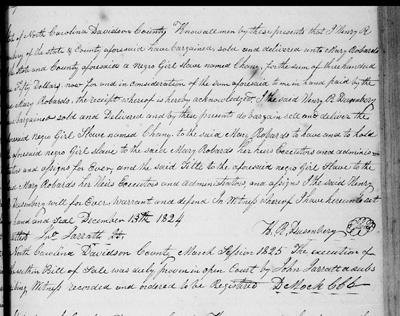 of North Carolina Davidson County Know all men by these presents that I Henry R
of the State & County aforesaid have bargained sold and delivered unto Mary Robards
the State and County aforesaid a Negro Girl slave named Chany for the sum of three hundred
Fifty Dollars now for and in consideration of the sum aforesaid to me in hand paid by the
Mary Robards, the receipt whereof is hereby acknowledged, I the said Henry R Dusenbery
bargained sold and Delivered and by these presents do bargain sell and deliver the
aforesaid negro Girl Slave named Chany to the said Mary Robards to have and to hold
aforesaid negro Girl slave to the said Mary Robards her heirs Executors and adminis
and assigns for Ever, and the said Title to the aforesaid negro Girl Slave to the
Mary Robards her heirs Executors and administrators, and assigns I the said Henry
Dusenbery will for Ever Warrant and defend In Witness whereof I have hereunto set
hand and Seal December 13th 1824
Jno Jarratt H. R. Dusenbery
North Carolina Davidson County March Session 1825 The execution of
the within Bill of Sale was duly proven in open Court by John Jarratt a subs
Witness recorded and ordered to be Registered D Mock CCC